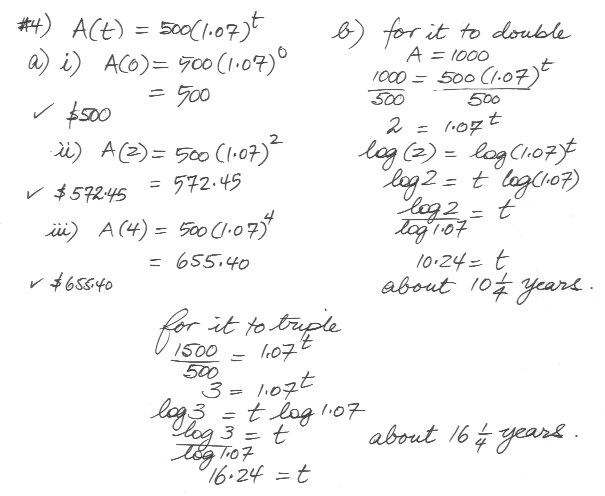 #4) A(t) = 500(1.07)^t
a) i) A(0) = 500(1.07)^0
= 500
✓ $500
ii) A(2) = 500(1.07)^2
= 572.45
✓ $572.45
iii) A(4) = 500(1.07)^4
= 655.40
✓ $655.40
b) for it to double
A = 1000
1000/500 = 500(1.07)^t/500
2 = 1.07^t
log(2) = log(1.07)^t
log 2 = t log(1.07)
log 2/log 1.07 = t
10.24 = t
about 10 1/4 years.
for it to triple
1500/500 = 1.07^t
3 = 1.07^t
log 3 = t log 1.07
log 3/log 1.07 = t
16.24 = t
about 16 1/4 years.